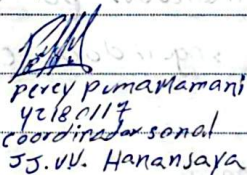 Percy PumaMamani
42180117
coordinador sonal
JJ.VV. Hanansaya